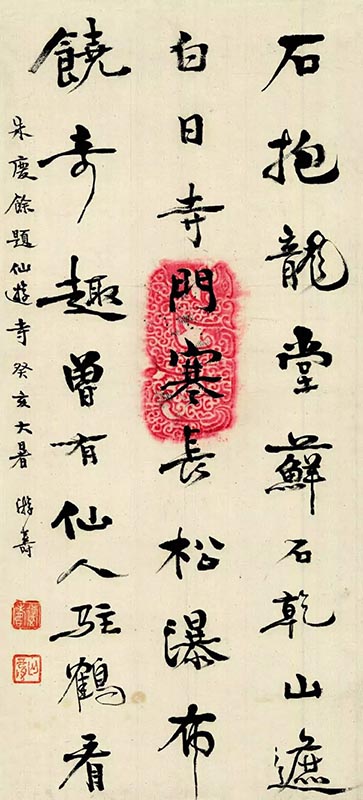 石抱龍堂蘚石乾山遮
白日寺門寒長松瀑布
饒奇趣曾有仙人駐鶴看
朱慶餘題仙遊寺癸亥大暑 游壽